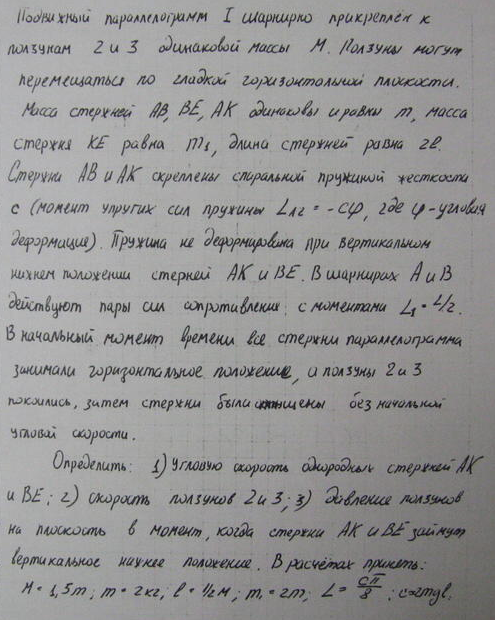 Подвижный параллелограмм I шарнирно прикреплён к
ползунам 2 и 3 одинаковой массы M. Ползуны могут
перемещаться по гладкой горизонтальной плоскости.
Масса стержней AB, BE, AK одинаковы и равны m, масса
стержня KE равна m₁, длина стержней равна 2l.
Стержни AB и AK скреплены спиральной пружиной жесткости
c (момент упругих сил пружины L₁₂ = -cφ, где φ-угловая
деформация). Пружина не деформирована при вертикальном
нижнем положении стерней AK и BE. В шарнирах A и B
действуют пары сил сопротивления с моментами L₁ = L/2.
В начальный момент времени все стержни параллелограмма
занимали горизонтальное положение, и ползуны 2 и 3
покоились, затем стержни были без начальной
угловой скорости.
Определить: 1) Угловую скорость однородных стержней AK
и BE; 2) скорость ползунов 2 и 3; 3) давление ползунов
на плоскость в момент, когда стержни AK и BE займут
вертикальное нижнее положение. В расчётах принять:
M = 1,5m; m = 2кг; l = 1/2м; m₁ = 2m; L = cπ/8; c=2mgl.